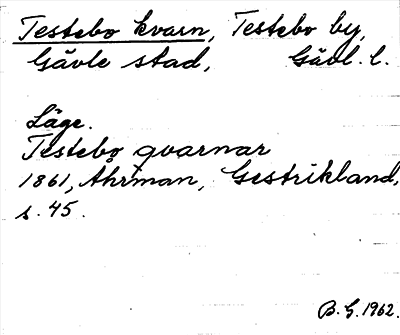 Testebo kvarn, Testebo by,
Gävle stad, Gävl. l.
Läge.
Testebo qvarnar
1861, Ahrman, Gestrikland,
s. 45.
B. G. 1962.